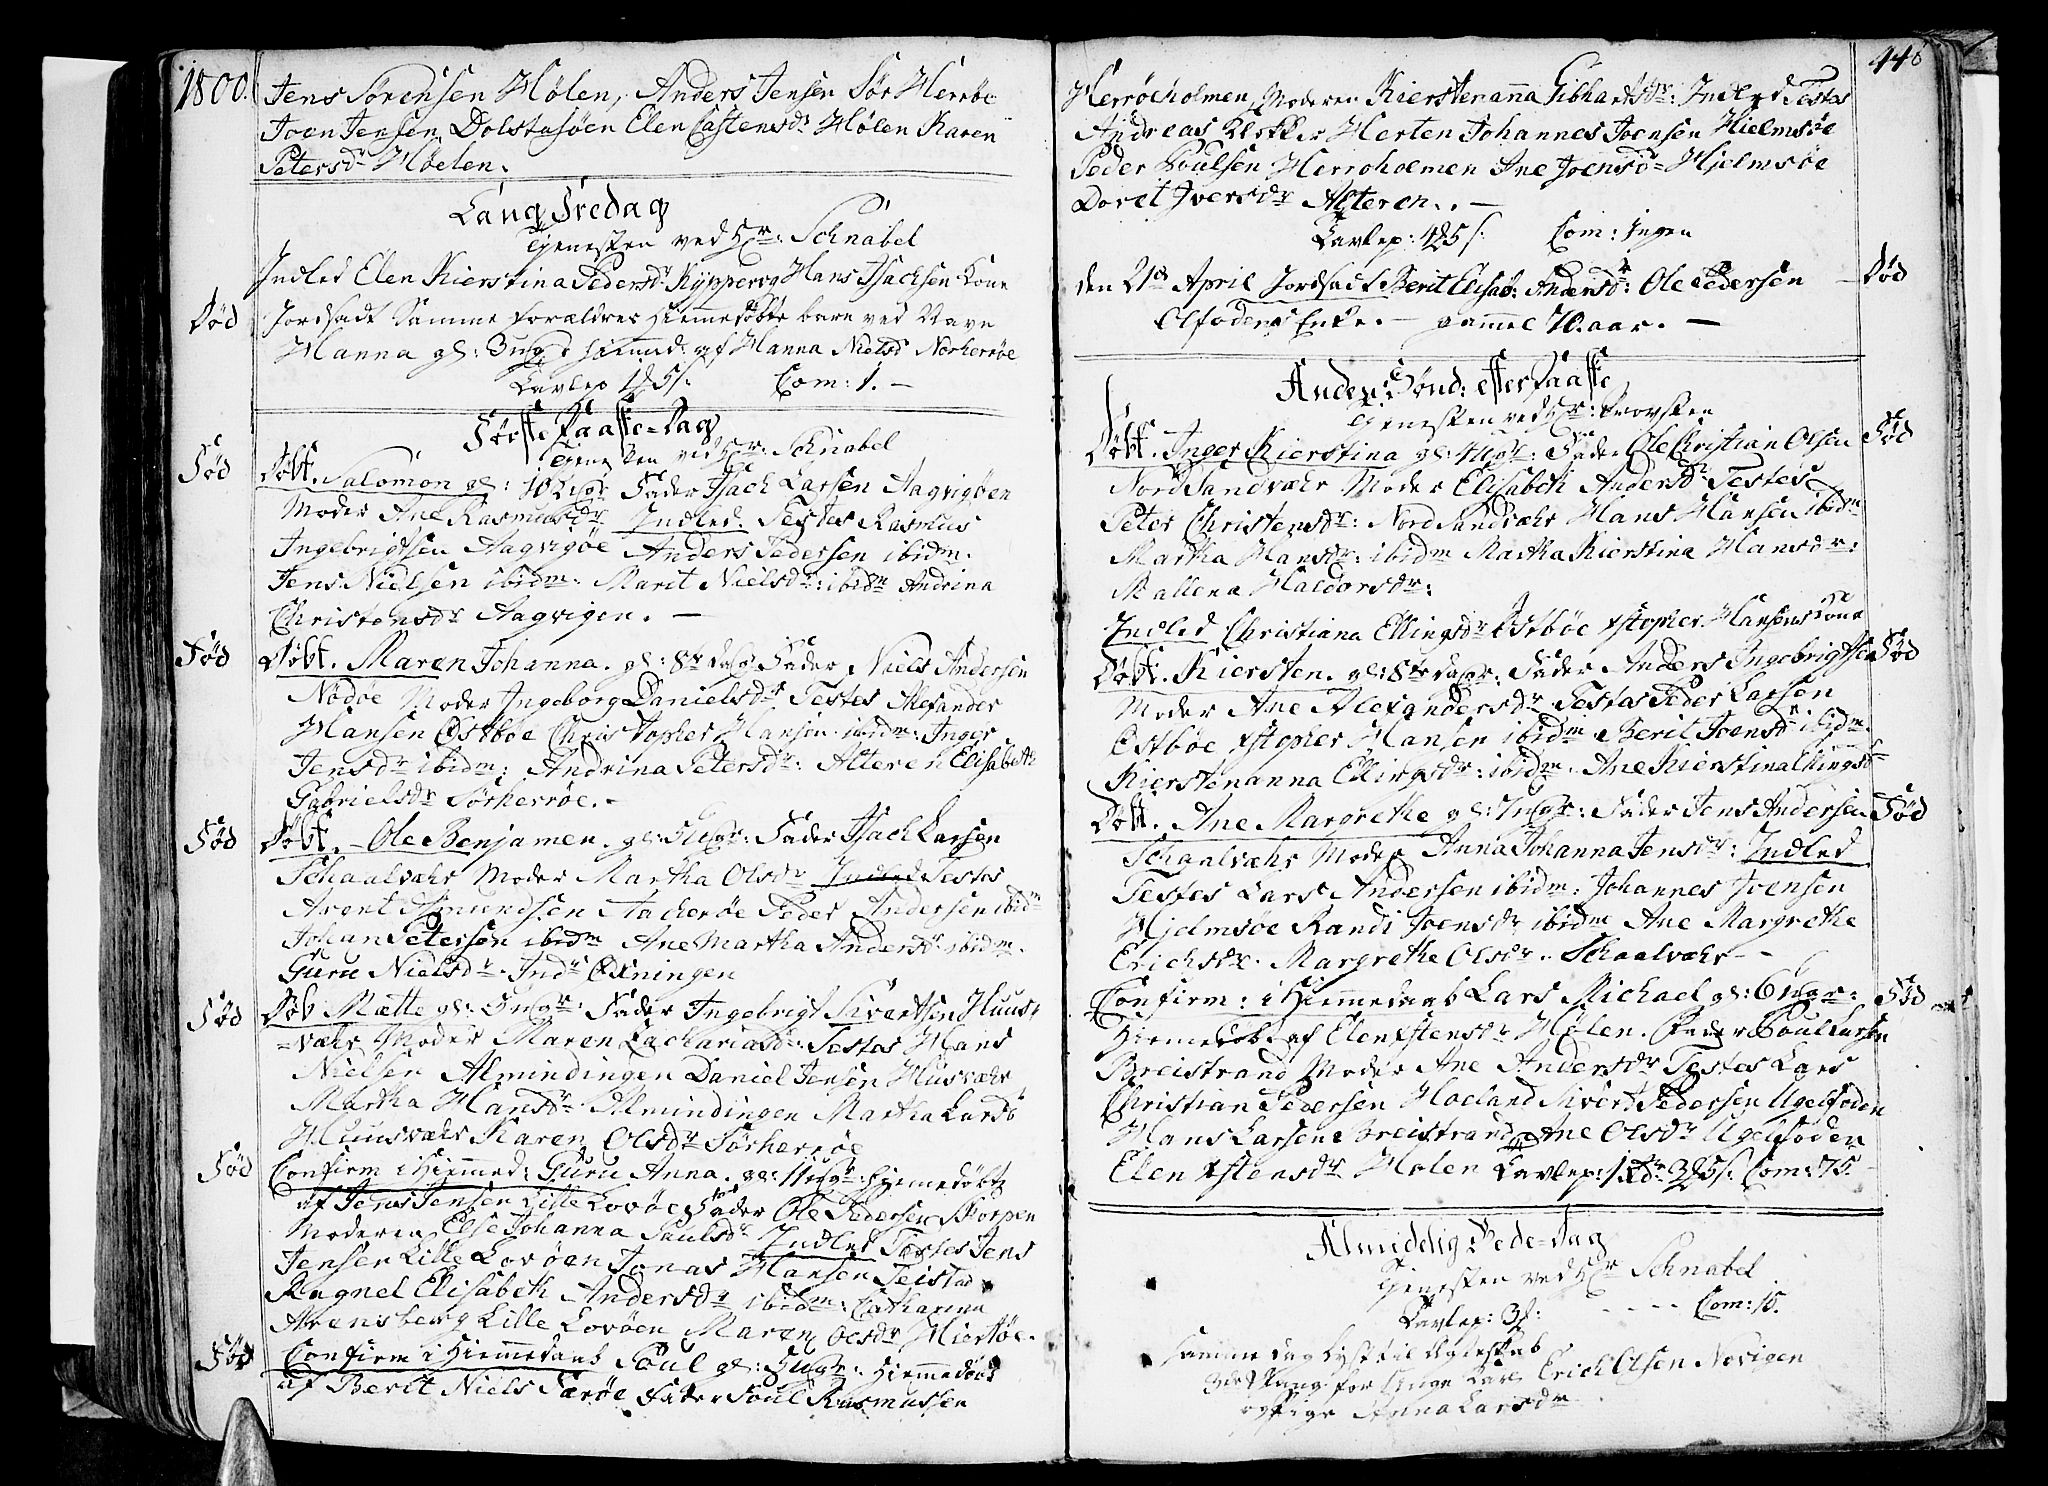 1800.
Jens Sørensen Hølen, Anders Jensen Sør Herrøe
Joen Jensen Dolstasøen Elen Castensdr Hølen Karen
Petersdr Høelen.
Lang Fredag
Tjenesten ved Hr: Schnabel
Indled Elen Kierstina Pedersdr Hans Isachsen Kone
Død Jordfæst Samme Forældres hiemmedøbte barn ved Navn
Hanna gl: hiemmed: af Hanna Nielsdr Norherrøe
Tavlep 1 5 s. Com: 1. –
Første Paaske-Dag
Tjenesten ved Hr: Schnabel
Fød Døbt. Salomon gl: 10 Uger Fader Isach Larsen Aagvigøen
Moder Ane Rasmusdr. Indled. Testes Rasmus
Ingebrigtsen Aagvigøe Anders Pedersen ibidm.
Jens Nielsen ibidm: Marit Nielsdr: ibidm Andrina
Christensdr Aagvigen. –
Fød Døbt. Maren Johanna. gl: 8te dag Fader Niels Andersen
Nødøe Moder Ingeborg Danielsdr Testes Alexander
Hansen Østbøe Christopher Hansen ibidm: Inger
Jensdr ibidm: Andrina Petersdr: Alteren Elisabeth
Gabrielsdr Sørherrøe. –
Fød Døbt. – Ole Benjamen. gl: 5 Uger: Fader Isach Larsen
Schaalvahr Moder Martha Olsdr Indled Testes
Arent Amundsen Aacherøe Peder Andersen ibidm
Johan Petersen ibidm Ane Martha Andersdr ibidm.
Guru Nielsdr. Indr Øxningen
Fød Døb Mætte gl: Fader Ingebrigt Sivertsen Huus-
=vahr Moder Maren Zachariasdr: Testes Hans
Nielsen Almindingen Daniel Jensen Husvahr
Martha Hansdr Almindingen Martha Larsdr
Huusvahr Karen Olsdr Sørherrøe
Fød Confirm i Hiemmed: Guru Anna. gl: 11 Uger: hiemedøbt
af Jens Jensen Lille Lovøe Fader Ole Pedersen Skorpen
Moderen Else Johanna Paulsdr Indled Testes Jens
Jensen Lille Lovøen Jonas Hansen Teistad
Ragnel Elisabeth Andersdr ibidm: Catharina
Arensberg Lille Lovøen Maren Olsdr Hiertøe.
Fød Confirm i Hiemmedaab Poul gl: Hiemmedøbt
af Berit Niels Færøe Fader Poul Rasmussen
440
Herrøeholmen, Moderen Kierstenanna Gibhartsdr: Indled Testes
Andreas Klokker Herten Johannes Joensen Hielmsøe
Peder Poulsen Herroholmen Ane Joensdr Hjelmsøe
Doret Iversdr Alteren. . –
Tavlep: 4 5 s: Com: Ingen
den 21de April Jordfæst Berit Elisab: Andersdr: Ole Pedersen Død
Olfodens Enke. – gammel 70. aar. –
Anden Sønd: efter Paaske
Tjenesten ved Hr: Provsten
Døbt. Inger Kierstina gl: 4 Ugr: Fader Ole Christian Olsen Fød
Nord Sandvahr Moder Elisabeth Andersdr Testes
Peter Christensdr: Nord Sandvahr Hans Hansen ibidm
Martha Hansdr: ibidm Martha Kierstina Hansdr:
Mallena Haldorsdr:
Indled Christiana Ellingsdr Østbøe Xstopher Hansens Kone
Døbt. Kiersten. gl: 8te dager. Fader Anders Ingebrigtsen Fød
Moder Ane Alexandersdr Testes Peder Larsen
Østbøe Xstopher Hansen ibidm Berit Joensdr ibidm.
Kierstenanna Ellingsdr: ibidm. Ane Kierstina Ellingsdr
Døbt. Ane Margrethe gl: Fader Jens Andersen Fød
Schaalvahr Moder Anna Johanna Jensdr: Indled
Testes Lars Andersen ibidm: Johannes Joensen
Hjelmsøe Randi Joensdr ibidm Ane Margrethe
Erichsdr. Margrethe Olsdr. Schaalvahr –
Confirm: i Hiemmedaab Lars Michael gl: 6 Ugr: Fød
Hiemedøbt af Elen Xstensdr Hølen. Fader Poul Larsen
Breistrand Moder Ane Andersdr Testes Lars
Christian Pedersen Hoeland Sivert Pedersen Ugelfoden
Hans Larsen Breistrand Ane Olsdr Ugelføden
Elen Xstensdr Holen Tavlep: 1 3 5 s: Com: 75.
Almindelig Bede-Dag
Tjenesten ved Hr Schnabel
Tavlep: 3 s: - - - - Com: 15.
Samme dag lyst til Egteskab
for Unge Karl Erich Olsen Novigen
og Pige Anna Larsdr